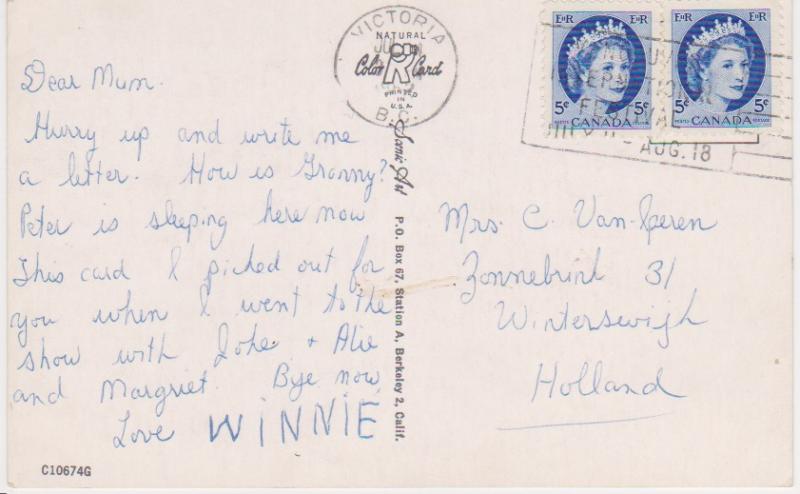 Dear Mum.
Hurry up and write me
a letter. How is Granny?
Peter is sleeping here now
This card I picked out for
you when I went to the
show with Joke + Alie
and Margriet. Bye now
Love WINNIE
C10674G
VICTORIA
B.C.
NATURAL
Color Card
R
PRINTED
IN
U.S.A.
Scenic Art
P.O. Box 67, Station A, Berkeley 2, Calif.
EIIR EIIR
5¢ 5¢
CANADA
POSTES POSTAGE
EIIR EIIR
5¢ 5¢
CANADA
POSTES POSTAGE
AUG. 18
Mrs. C. Van-Iperen
Zonnebrink 31
Winterswijk
Holland